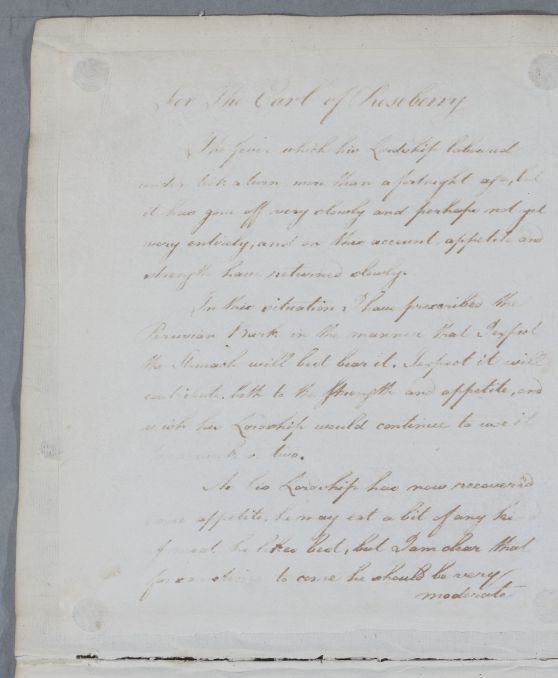 For The Earl of Roseberry
The fever which his Lordship laboured
under took a turn more than a fortnight ago, but
it has gone off very slowly and perhaps not yet
very entirely, and on this account appetite and
strength have returned slowly.
In this situation I have prescribed the
Peruvian Bark in the manner that I expect
the Stomach will best bear it. I expect it will
contribute both to the strength and appetite, and
wish his Lordship would continue to use it
two.
As his Lordship has now recovered
some appetite, he may eat a bit of any
of meat he likes best, but I am clear that
for to come he should be very
moderate